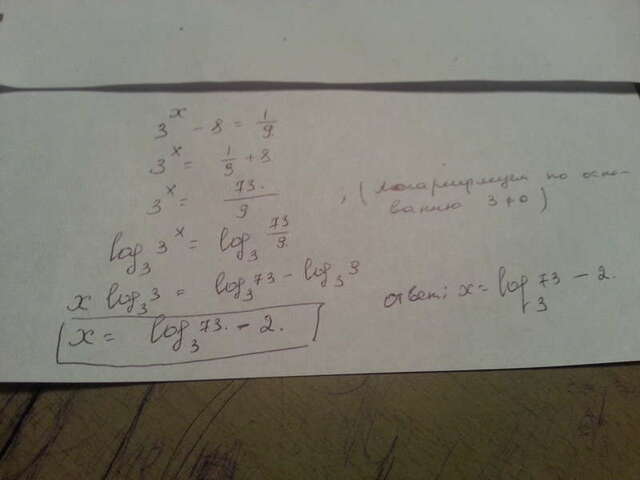 3^x - 8 = 1/9
3^x = 1/9 + 8
3^x = 73/9 , (логарифмируем по осно-
ванию 3≠0)
log_3 3^x = log_3 73/9
x log_3 3 = log_3 73 - log_3 9
x = log_3 73 - 2.
ответ: x = log_3 73 - 2.